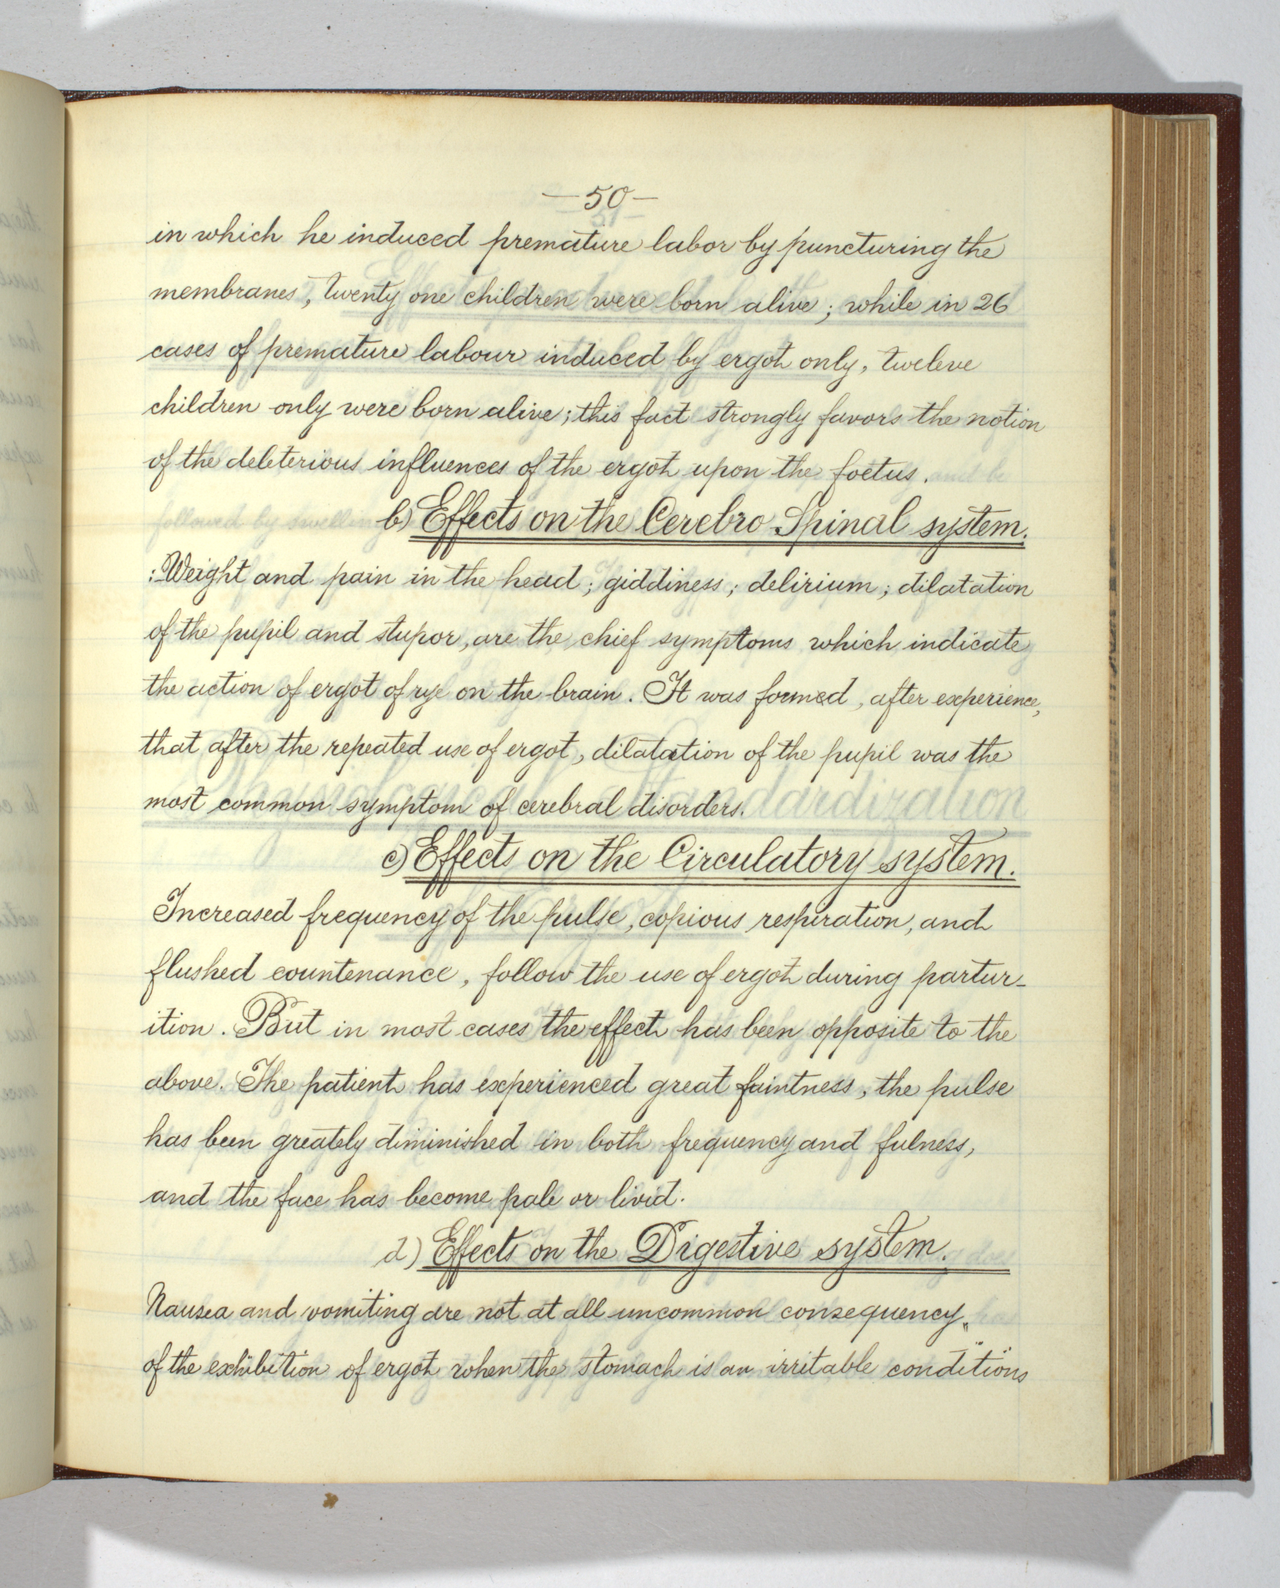 —50—
in which he induced premature labor by puncturing the
membranes, twenty one children were born alive; while in 26
cases of premature labour induced by ergot only, tweleve
children only were born alive; this fact strongly favors the notion
of the deleterious influences of the ergot upon the foetus.
b) Effects on the Cerebro Spinal system.
:Weight and pain in the head; giddiness; delirium; dilatation
of the pupil and stupor, are the chief symptoms which indicate
the action of ergot of rye on the brain. It was formed, after experience,
that after the repeated use of ergot, dilatation of the pupil was the
most common symptom of cerebral disorders.
c) Effects on the Circulatory system.
Increased frequency of the pulse, copious respiration, and
flushed countenance, follow the use of ergot during partur-
ition. But in most cases the effect has been opposite to the
above. The patient has experienced great faintness, the pulse
has been greately diminished in both frequency and fulness,
and the face has become pale or livid.
d) Effects on the Digestive system.
Nausea and vomiting are not at all uncommon consequency
of the exhibition of ergot when the stomach is an irritable conditions